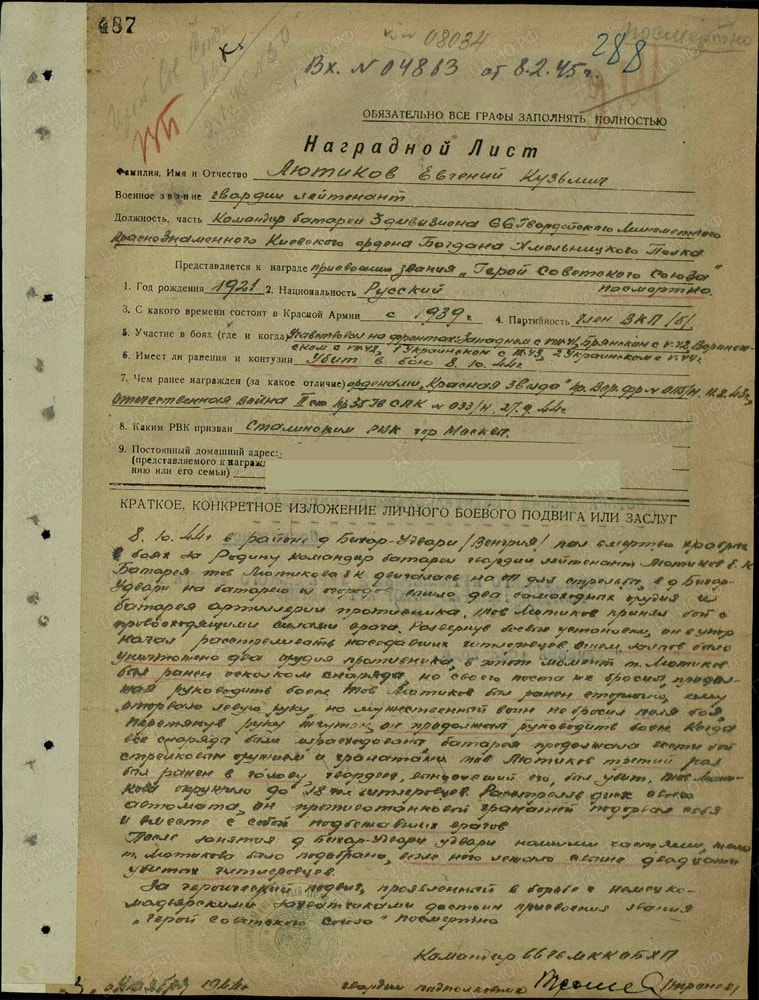 487
08034
посмертно
Вх. N 04863 от 8.2.45 г.
288
ОБЯЗАТЕЛЬНО ВСЕ ГРАФЫ ЗАПОЛНЯТЬ ПОЛНОСТЬЮ
Наградной Лист
Фамилия, Имя и Отчество Лютиков Евгений Кузьмич
Военное звание гвардии лейтенант
Должность, часть Командир батареи 3 дивизиона 66 Гвардейского Минометного
Краснознаменного Киевского ордена Богдана Хмельницкого Полка
Представляется к награде присвоению звания „Герой Советского Союза"
посмертно.
1. Год рождения 1921 2. Национальность Русский
3. С какого времени состоит в Красной Армии с 1939 г. 4. Партийность член ВКП(б)
5. Участие в боях (где и когда) Участвовал на фронтах: Западном с 41, Брянском с 42, Воронеж-
ском с 42, 1 Украинском с 43, 2 Украинском с 44 г.
6. Имеет ли ранения и контузии Убит в бою 8.10.44 г.
7. Чем ранее награжден (за какое отличие) орденами „Красная звезда" пр. Вор. фр N
Отечественная война II ст. пр. 35 Гв СПК N 033/н. 27.9.44 г.
8. Каким РВК призван Сталинским РВК гор Москвы.
9. Постоянный домашний адрес:
(представляемого к награжд
нию или его семьи)
КРАТКОЕ, КОНКРЕТНОЕ ИЗЛОЖЕНИЕ ЛИЧНОГО БОЕВОГО ПОДВИГА ИЛИ ЗАСЛУГ
8.10.44 г в районе д Бихар-Удвари /Венгрия/ пал смертью храбрых
в боях за Родину командир батареи гвардии лейтенант Лютиков Е.К.
Батарея тов Лютикова Е К двигалась на ОП для стрельбы, в д Бихар-
Удвари на батарею два самоходных орудия и
батарея артиллерии противника. Тов Лютиков принял бой с
превосходящими силами врага. Развернув боевые установки, он в упор
начал расстреливать наседавших гитлеровцев, залпов было
уничтожено два орудия противника, в этот момент т. Лютиков
был ранен осколком снаряда, но своего поста не бросил, продол-
жая руководить боем. Тов Лютиков был ранен вторично, ему
оторвало левую руку, но мужественный воин не бросил поля боя,
перетянув руку жгутом, он продолжал руководить боем. Когда
все снаряды были израсходованы батарея продолжала вести бой
стрелковым оружием и гранатами. тов Лютиков третий раз
был ранен в голову, гвардеец, его, был убит. Тов Люти-
кова окружило до 18 ти гитлеровцев. Расстреляв диск своего
автомата, он противотанковой гранатой подорвал себя
и вместе с собой подбежавших врагов.
После занятия д Бихар-Удвари нашими частями, тело
т. Лютикова было подобрано, возле него лежало свыше двадцати
убитых гитлеровцев.
За героический подвиг, проявленный в борьбе с немецко-
мадьярскими захватчиками достоин присвоения звания
„Герой Советского Союза" посмертно
Командир 66
гвардии подполковник
ноября 1944 г.